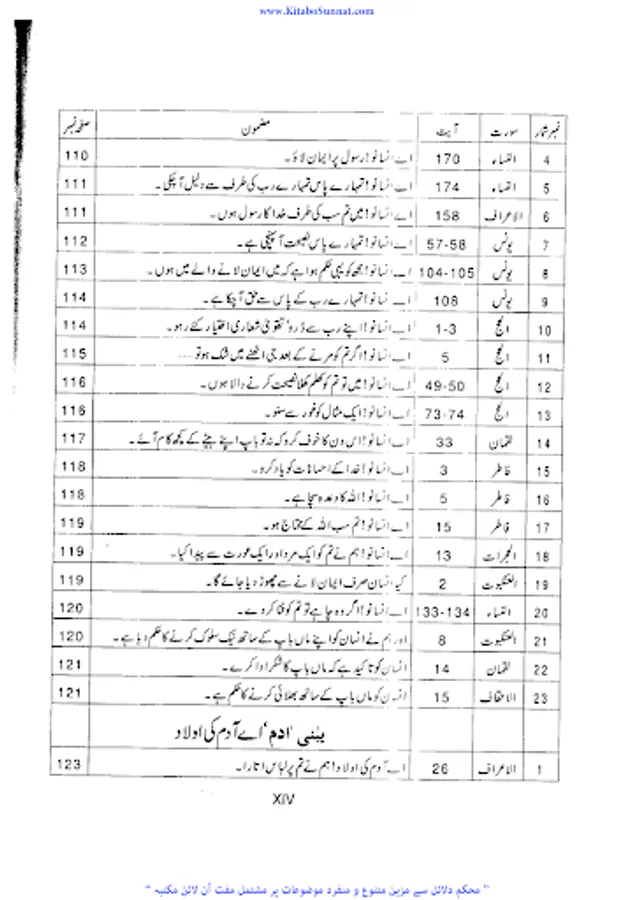 www.KitaboSunnat.com
نمبر شمار سورت آیت مضمون صفحہ نمبر
4 النساء 170 اے انسانو! رسول پر ایمان لاؤ۔ 110
5 النساء 174 اے انسانو! تمہارے پاس تمہارے رب کی طرف سے دلیل آ چکی۔ 111
6 الاعراف 158 اے انسانو! میں تم سب کی طرف خدا کا رسول ہوں۔ 111
7 یونس 57-58 اے انسانو! تمہارے پاس نصیحت آ پہنچی ہے۔ 112
8 یونس 104-105 اے انسانو! مجھ کو یہی حکم ہوا ہے کہ میں ایمان لانے والے میں ہوں۔ 113
9 یونس 108 اے انسانو! تمہارے رب کے پاس سے حق آ چکا ہے۔ 114
10 الحج 1-3 اے انسانو! اپنے رب سے ڈرو' تقویٰ شعاری اختیار کئے رہو۔ 114
11 الحج 5 اے انسانو! اگر تم کو مرنے کے بعد جی اٹھنے میں شک ہو تو --- 115
12 الحج 49-50 اے انسانو! میں تو تم کو کھلم کھلا نصیحت کرنے والا ہوں۔ 116
13 الحج 73-74 اے انسانو! ایک مثال کو غور سے سنو۔ 116
14 لقمان 33 اے انسانو! اس دن کا خوف کرو کہ نہ تو باپ اپنے بیٹے کے کچھ کام آئے۔ 117
15 فاطر 3 اے انسانو! خدا کے احسانات کو یاد کرو۔ 118
16 فاطر 5 اے انسانو! اللہ کا وعدہ سچا ہے۔ 118
17 فاطر 15 اے انسانو! تم سب اللہ کے محتاج ہو۔ 119
18 الحجرات 13 اے انسانو! ہم نے تم کو ایک مرد اور ایک عورت سے پیدا کیا۔ 119
19 العنکبوت 2 کیا انسان صرف ایمان لانے سے چھوڑ دیا جائے گا۔ 119
20 النساء 133-134 اے انسانو! اگر وہ چاہے تو تم کو فنا کر دے۔ 120
21 العنکبوت 8 اور ہم نے انسان کو اپنے ماں باپ کے ساتھ نیک سلوک کرنے کا حکم دیا ہے۔ 120
22 لقمان 14 انسان کو تاکید ہے کہ ماں باپ کا شکر ادا کرے۔ 121
23 الاحقاف 15 انسان کو ماں باپ کے ساتھ بھلائی کرنے کا حکم ہے۔ 121
یبنی ادم' اے آدم کی اولاد
1 الاعراف 26 اے آدم کی اولاد! ہم نے تم پر لباس اتارا۔ 123
XIV
" محکم دلائل سے مزین متنوع و منفرد موضوعات پر مشتمل مفت آن لائن مکتبہ "